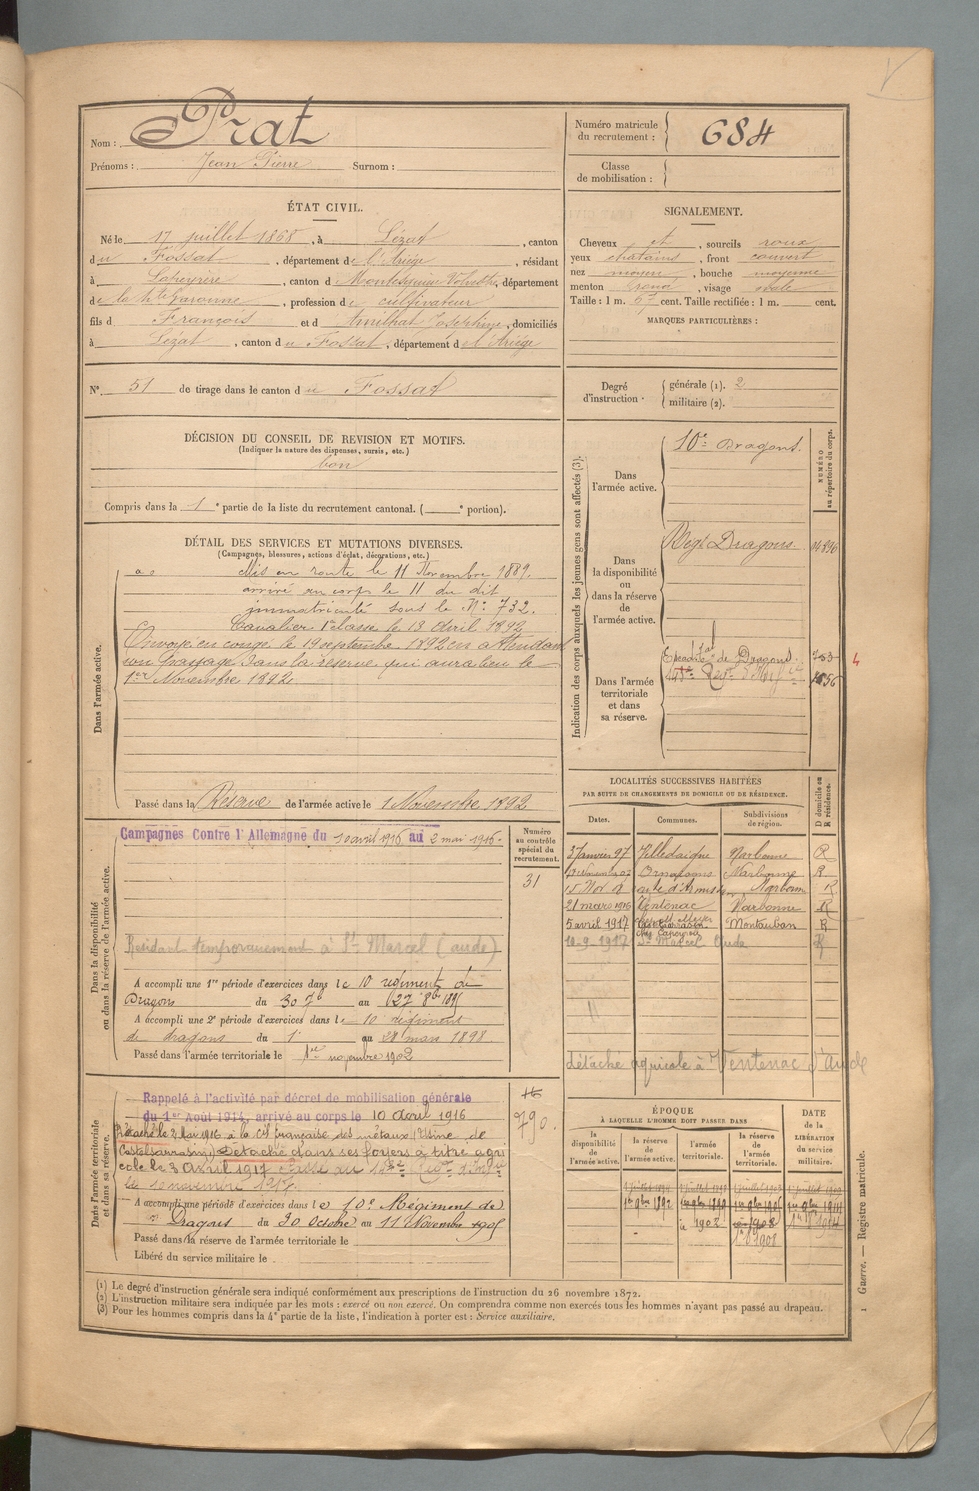 Nom : Prat
Prénoms : Jean Pierre Surnom :
Numéro matricule du recrutement : 684
Classe de mobilisation :
ÉTAT CIVIL.
Né le 17 juillet 1868, à Lézat, canton
du Fossat, département de l'Ariège, résidant
à Lapeyrère, canton d Montesquieu Volvestre, département
de la Hte Garonne, profession de cultivateur
fils d François et d Amilhat Josephine, domiciliés
à Lézat, canton du Fossat, département d l'Ariège
N° 51 de tirage dans le canton du Fossat
SIGNALEMENT.
Cheveux et, sourcils roux
yeux chatains, front couvert
nez moyen, bouche moyenne
menton rond, visage ovale
Taille : 1 m. 67 cent. Taille rectifiée : 1 m. cent.
MARQUES PARTICULIÈRES :
Degré d'instruction
générale (1). 2
militaire (2).
DÉCISION DU CONSEIL DE REVISION ET MOTIFS.
(Indiquer la nature des dispenses, sursis, etc.)
bon
Compris dans la 1e partie de la liste du recrutement cantonal. ( e portion).
DÉTAIL DES SERVICES ET MUTATIONS DIVERSES.
(Campagnes, blessures, actions d'éclat, décorations, etc.)
Dans l'armée active.
Mis en route le 11 Novembre 1889.
arrivé au corps le 11 du dit
immatriculé sous le N° 732.
Cavalier 1e classe le 13 Avril 1892
Envoyé en congé le 19 septembre 1892 en attendant
son passage dans la réserve qui aura lieu le
1er Novembre 1892
Passé dans la Réserve de l'armée active le 1 Novembre 1892
Indication des corps auxquels les jeunes gens sont affectés (3).
NUMÉRO au répertoire du corps.
Dans l'armée active.
10e Dragons.
Dans la disponibilité ou dans la réserve de l'armée active.
Regt Dragons
Dans l'armée territoriale et dans sa réserve.
de Dragons
4
Dans la disponibilité ou dans la réserve de l'armée active.
Campagnes Contre l'Allemagne du 10 avril 1916 au 2 mai 1916.
Numéro au contrôle spécial du recrutement.
31
Résidant temporairement à St Marcel (aude)
A accompli une 1re période d'exercices dans le 10 régiment de
Dragons du 30 7b au 27 8b 1895
A accompli une 2e période d'exercices dans le 10 régiment
de dragons du 1 au 28 mars 1898
Passé dans l'armée territoriale le 1er novembre 1902
LOCALITÉS SUCCESSIVES HABITÉES
PAR SUITE DE CHANGEMENTS DE DOMICILE OU DE RÉSIDENCE.
D domicile ou R résidence.
Dates. Communes. Subdivisions de région.
3 Janvier 97 Villedaigne Narbonne R
Ornaisons Narbonne R
Narbonne R
21 mars 1916 Ventenac Narbonne R
5 avril 1917 Montauban R
10-9-1917 St Marcel Aude R
détaché agricole à Ventenac d'Aude
Dans l'armée territoriale et dans sa réserve.
Rappelé à l'activité par décret de mobilisation générale
du 1er Août 1914, arrivé au corps le 10 Avril 1916
Détaché le 2 Mai 1916 à la Cie française des métaux (Usine de
Castelsarrasin) Détaché dans ses foyers à titre agri
cole le 3 Avril 1917
le 10 novembre 1917.
790.
A accompli une période d'exercices dans le 10e Régiment de
Dragons du 30 Octobre au 11 Novembre 1905
Passé dans la réserve de l'armée territoriale le
Libéré du service militaire le
ÉPOQUE
À LAQUELLE L'HOMME DOIT PASSER DANS
DATE DE LA LIBÉRATION du service militaire.
la disponibilité de l'armée active.
la réserve de l'armée active.
l'armée territoriale.
la réserve de l'armée territoriale.
1er 9bre 1892
1902
1908
(1) Le degré d'instruction générale sera indiqué conformément aux prescriptions de l'instruction du 26 novembre 1872.
(2) L'instruction militaire sera indiquée par les mots : exercé ou non exercé. On comprendra comme non exercés tous les hommes n'ayant pas passé au drapeau.
(3) Pour les hommes compris dans la 4e partie de la liste, l'indication à porter est : Service auxiliaire.
1 Guerre. — Registre matricule.